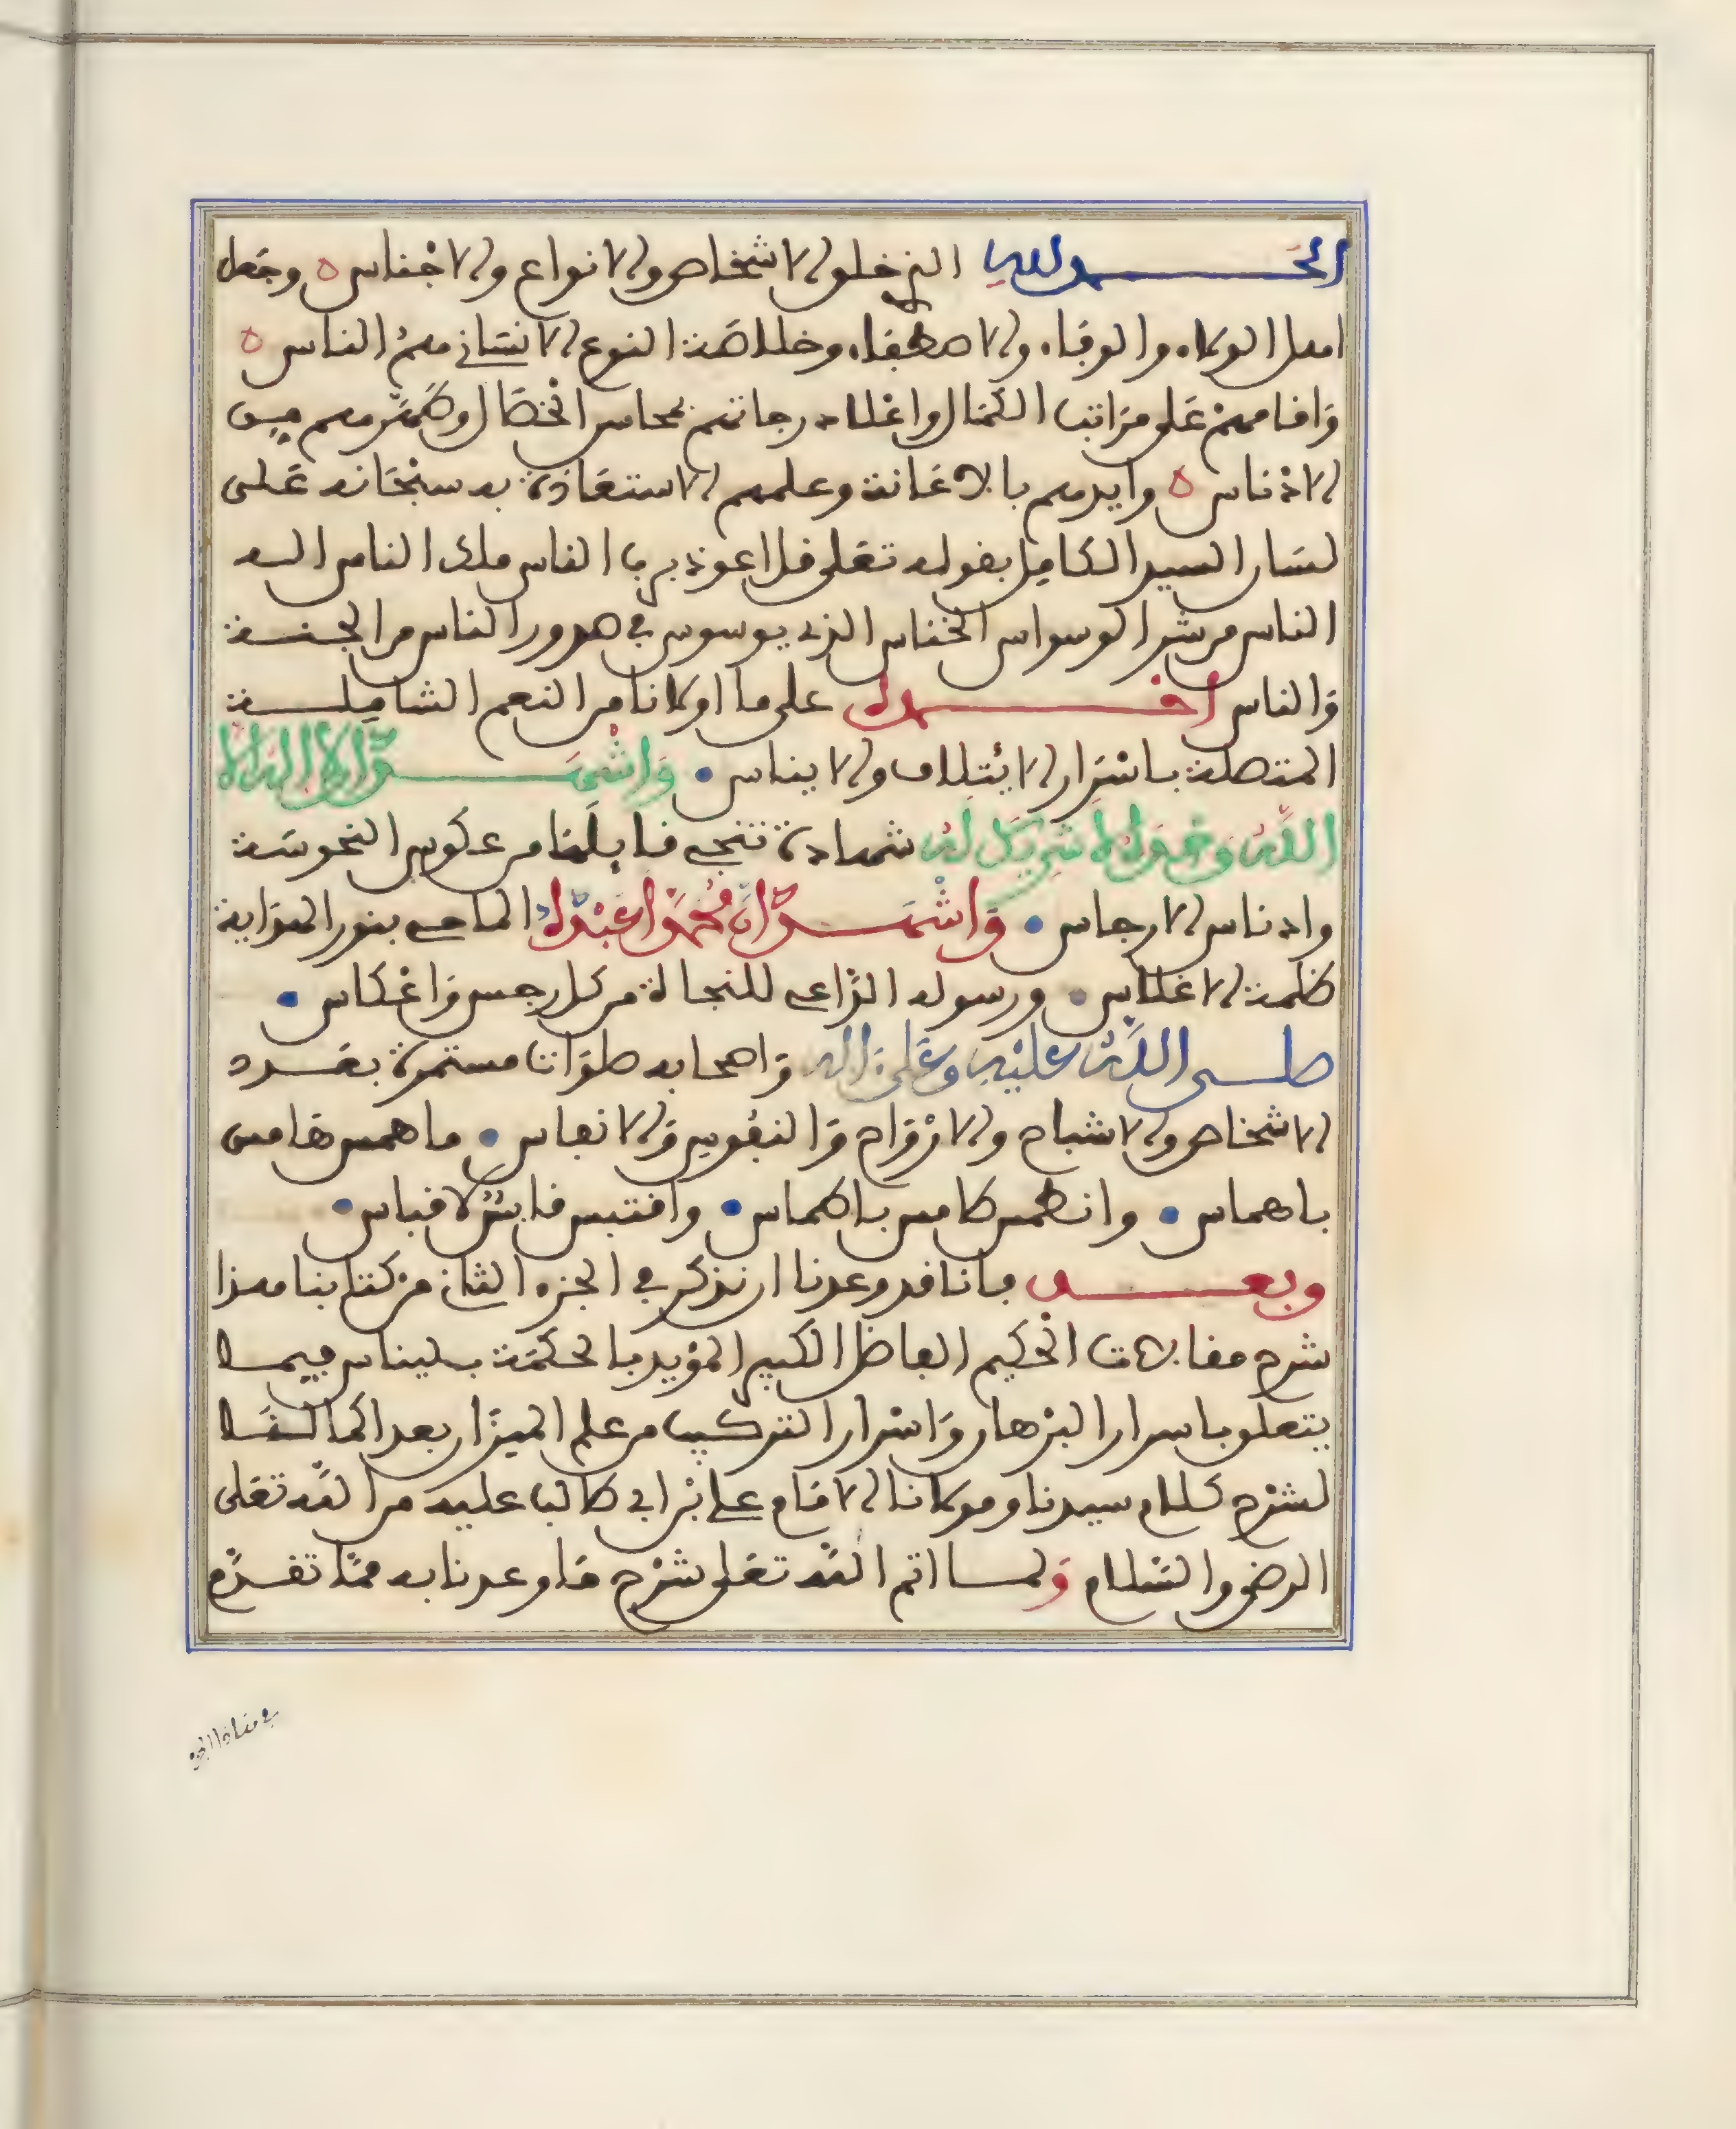 الحمد لله الذي خلق الاشخاص والانواع والاجناس ه وجعل
اهل الولاء والوفاء والاصطفاء وخلاصة النوع الانساني هم الناس ه
واقامهم على مراتب الكمال واعلا درجاتهم بمحاسن الخصال وطهرهم من
الادناس ه وايدهم بالاعانة وعلمهم الاستعاذة به سبحانه على
لسان السيد الكامل بقوله تعلى قل اعوذ برب الناس ملك الناس اله
الناس من شر الوسواس الخناس الذي يوسوس في صدور الناس من الجنة
والناس احمده على ما اولانا من النعم الشاملة
المتصلة باسرار الايتلاف والايناس • واشهد ان لا اله الا
الله وحده لا شريك له شهادة تنجي قايلها من عكوس النحوسة
وادناس الارجاس • واشهد ان محمدا عبده الماحي بنور الهداية
ظلمة الاغلاس • ورسوله الداعي للنجاة من كل رجس واعكاس •
صلى الله عليه وعلى اله واصحابه صلوات مستمرة بعدد
الاشخاص والاشباح والارواح والنفوس والانفاس • ما همس هامس
باهماس • وانطمس طامس باطماس • واقتبس قابس لاقباس •
وبعد فانا قد وعدنا ان نذكر في الجزء الثاني من كتابنا هذا
شرح مقالات الحكيم الفاضل الكبير المؤيد بالحكمة بليناس فيما
يتعلق باسرار البرهان واسرار التركيب من علم الميزان بعد اكمالنا
لشرح كلام سيدنا ومولانا الامام علي بن ابي طالب عليه من الله تعلى
الرضى والسلام ولما اتم الله تعلى شرح ما وعدنا به مما تقدم
في هذا الجزء